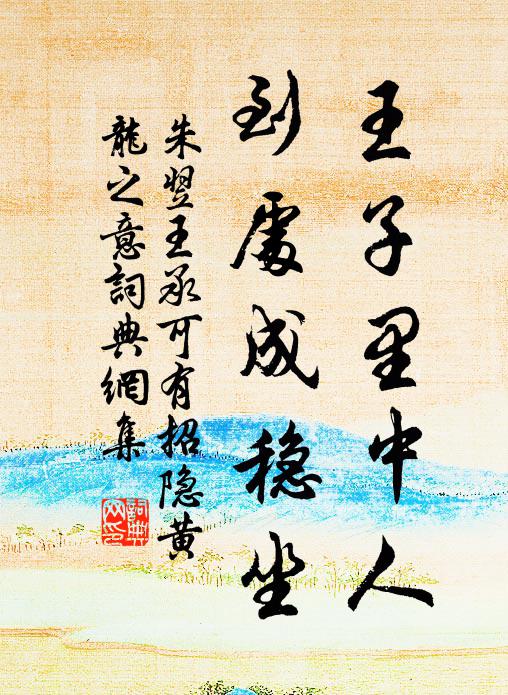 王子里中人
到處成稳坐
朱翌王承可有招隐黄
龍之意詞典網集
詞典网印